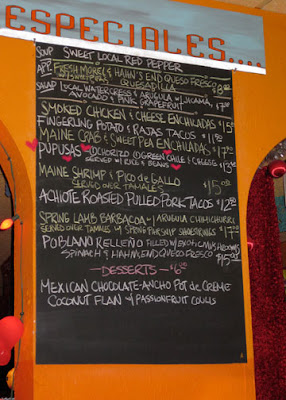 ESPECIALES....
SOUP SWEET LOCAL RED PEPPER
APP FRESH MOREL & HAHN'S END QUESO FRESCO
QUESADILLA
SALAD LOCAL WATERCRESS & ARUGULA w/ JICAMA,
AVOCADO & PINK GRAPEFRUIT
SMOKED CHICKEN & CHEESE ENCHILADAS $15
FINGERLING POTATO & RAJAS TACOS
MAINE CRAB & SWEET PEA ENCHILADAS $17
PUPUSAS ① CHORIZO ② GREEN CHILE & CHEESE
SERVED w/ RICE & BEANS
MAINE SHRIMP & PICO de GALLO
SERVED OVER TAMALES $15
ACHIOTE ROASTED PULLED PORK TACOS $12
SPRING LAMB BARBACOA w/ ARUGULA CHIMICHURRI
SERVED OVER TAMALES w/ $17
POBLANO RELLEÑO FILLED w/
SPINACH & HAHN'S END QUESO FRESCO $15
—DESSERTS— $6
MEXICAN CHOCOLATE-ANCHO POT de CREME
COCONUT FLAN w/ PASSIONFRUIT COULIS